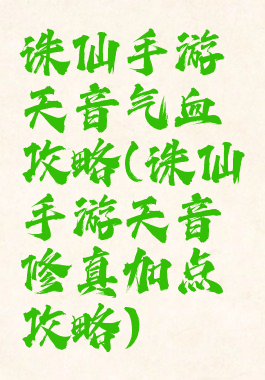 诛仙手游
天音气血
攻略(诛仙
手游天音
修真加点
攻略)